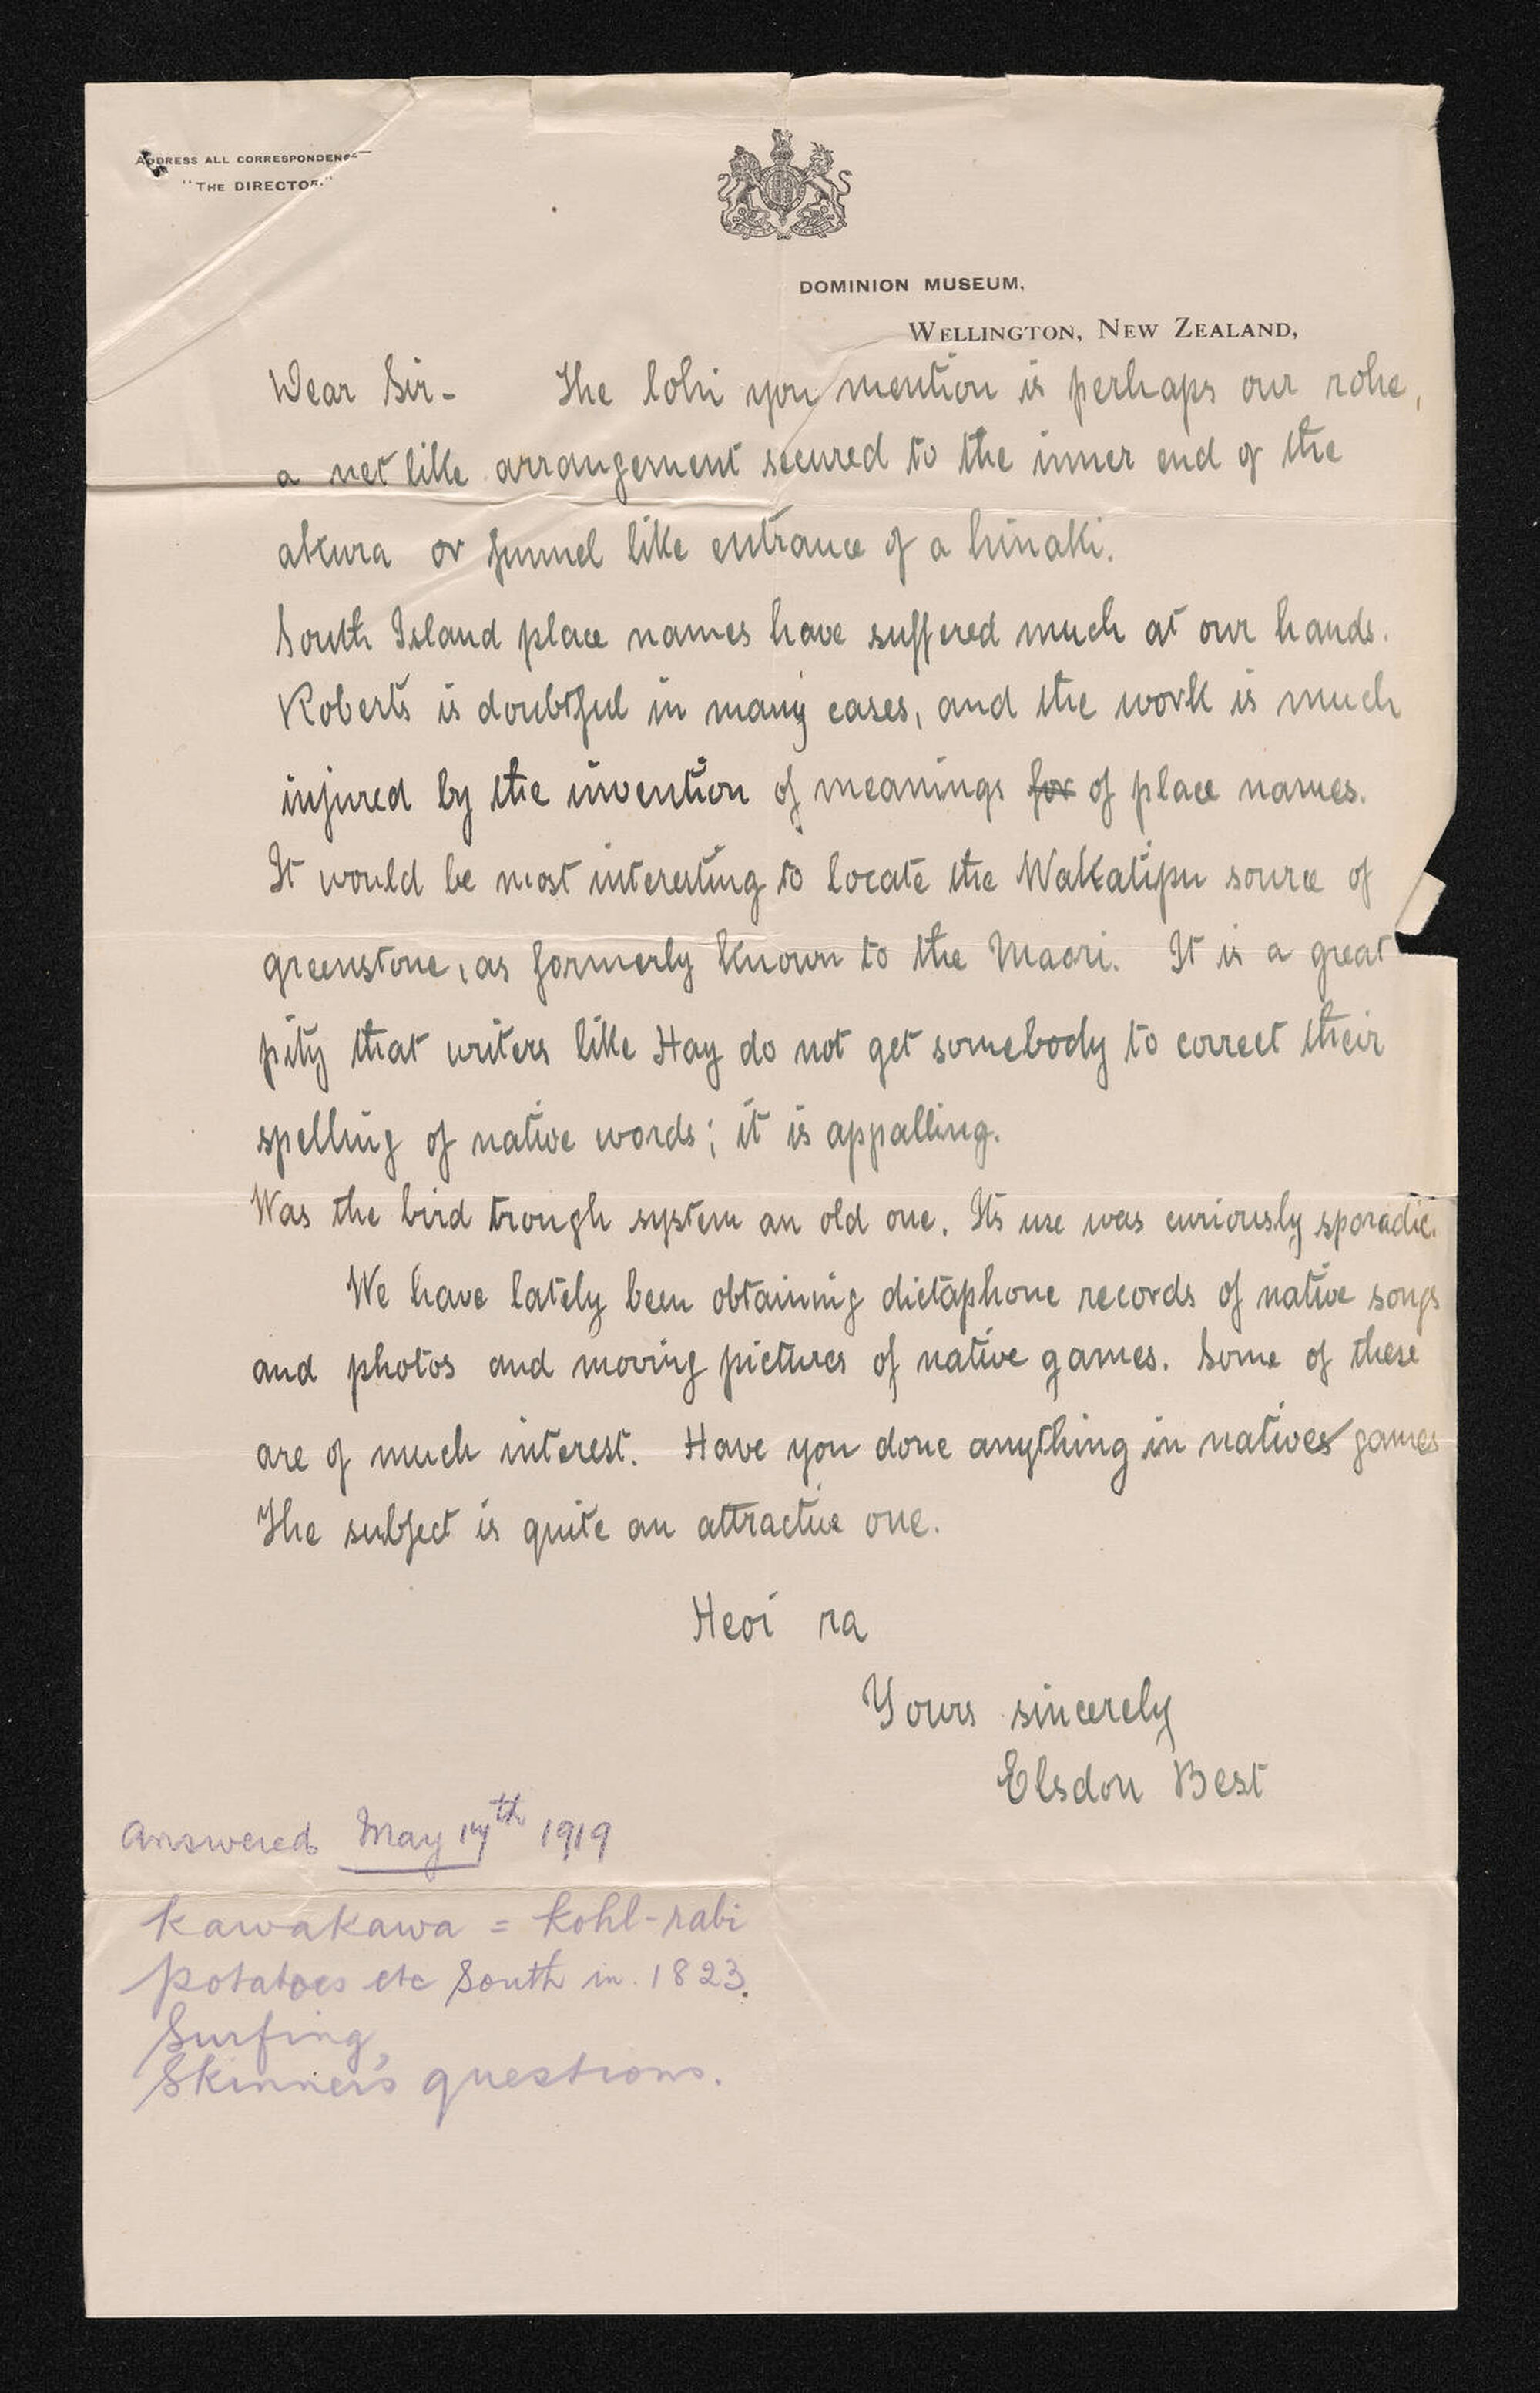 ADDRESS ALL CORRESPONDENCE
"THE DIRECTOR."
DOMINION MUSEUM,
WELLINGTON, NEW ZEALAND,
Dear Sir- The lohi you mention is perhaps our rohe,
a net like arrangement secured to the inner end of the
akura or funnel like entrance of a hinaki.
South Island place names have suffered much at our hands.
Roberts is doubtful in many cases, and the work is much
injured by the invention of meanings for of place names.
It would be most interesting to locate the Wakatipu source of
greenstone, as formerly known to the Maori. It is a great
pity that writers like Hay do not get somebody to correct their
spelling of native words; it is appalling.
Was the bird trough system an old one. Its use was curiously sporadic.
We have lately been obtaining dictaphone records of native songs
and photos and moving pictures of native games. Some of these
are of much interest. Have you done anything in natives games
The subject is quite an attractive one.
Heoi ra
Yours sincerely
Elsdon Best
Answered May 17th 1919
Kawakawa = Kohl-rabi
potatoes etc South in 1823.
Surfing,
Skinner's questions.